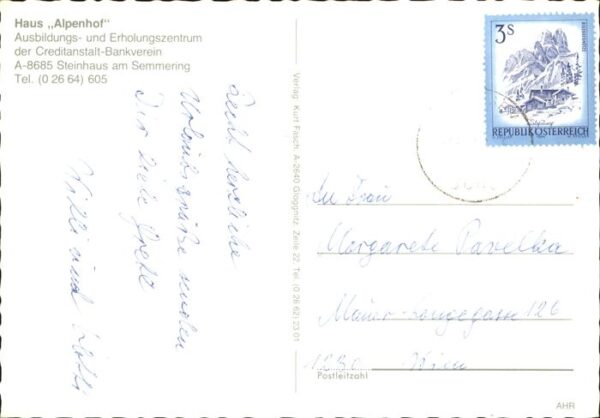 Haus „Alpenhof“
Ausbildungs- und Erholungszentrum
der Creditanstalt-Bankverein
A-8685 Steinhaus am Semmering
Tel. (0 26 64) 605
Recht herzliche
Urlaubsgrüße senden
Dir liebe Grete
Willi und
Verlag: Kurt Fasch, A-2640 Gloggnitz, Zeile 22, Tel. (0 26 62) 23 01
3 S
REPUBLIK ÖSTERREICH
An Frau
Margarete Pavelka
Maurer-Langegasse 126
1230 Wien
Postleitzahl
AHR